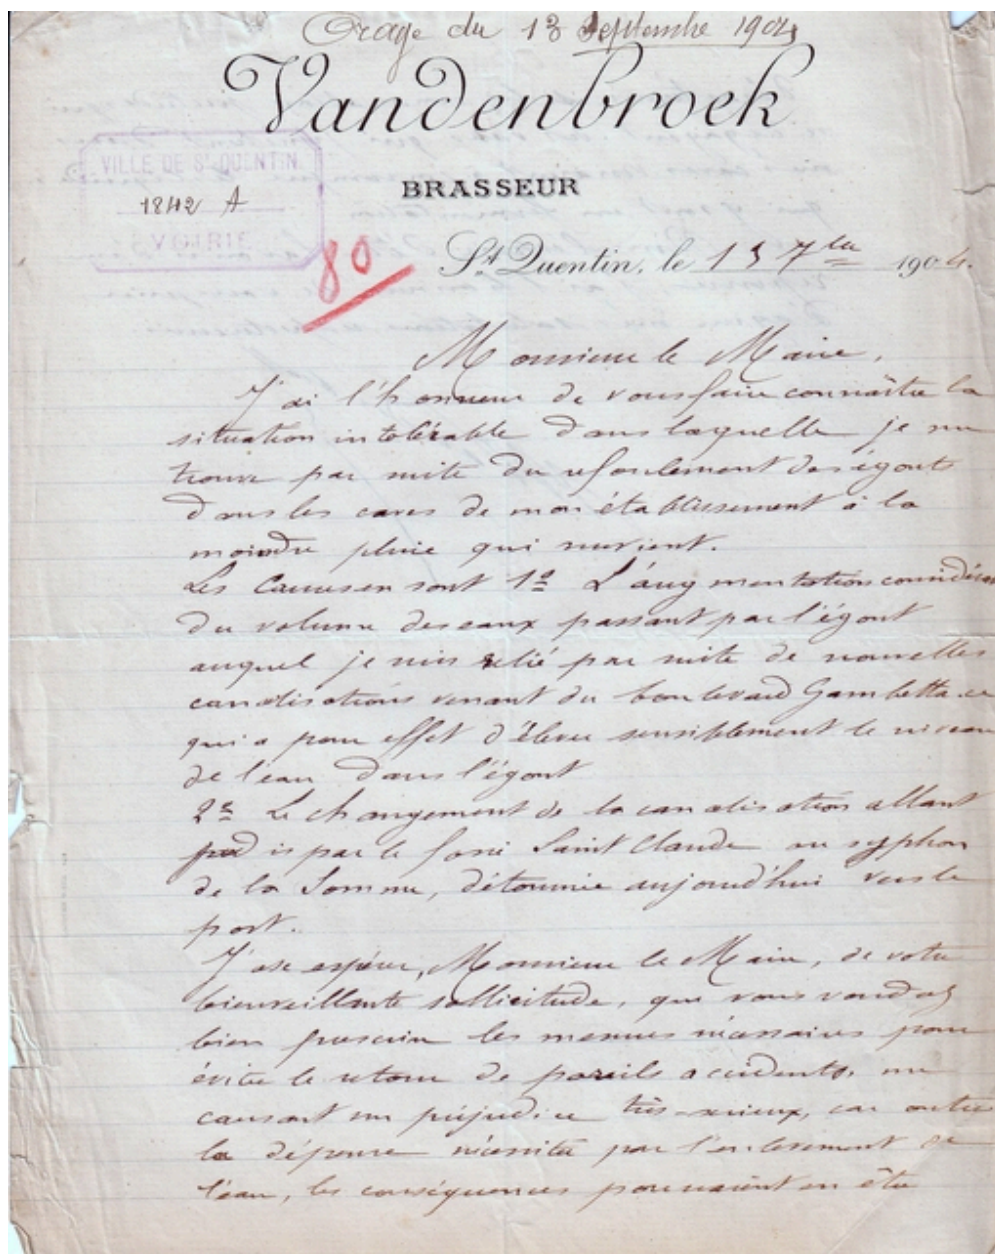 Orage du 13 Septembre 1904
Vandenbroek
VILLE DE St QUENTIN
1842 A
VOIRIE
BRASSEUR
80
St Quentin, le 13 7bre 1904.
Monsieur le Maire,
J'ai l'honneur de vous faire connaître la
situation intolérable dans laquelle je me
trouve par suite du refoulement des égouts
dans les caves de mon établissement à la
moindre pluie qui survient.
Les Causes en sont 1º L'augmentation
du volume des eaux passant par l'égout
auquel je suis relié par suite de nouvelles
canalisations venant du boulevard Gambetta ce
qui a pour effet d'élever sensiblement le niveau
de l'eau dans l'égout
2º Le changement de la canalisation allant
jadis par le fossé Saint Claude au syphon
de la Somme, détournée aujourd'hui vers le
port.
J'ose espérer, Monsieur le Maire, de votre
bienveillante sollicitude, que vous voudrez
bien prescrire les mesures nécessaires pour
éviter le retour de pareils accidents, me
causant un préjudice très-serieux, car outre
la dépense nécessitée par l'enlèvement de
l'eau, les conséquences pourraient en être